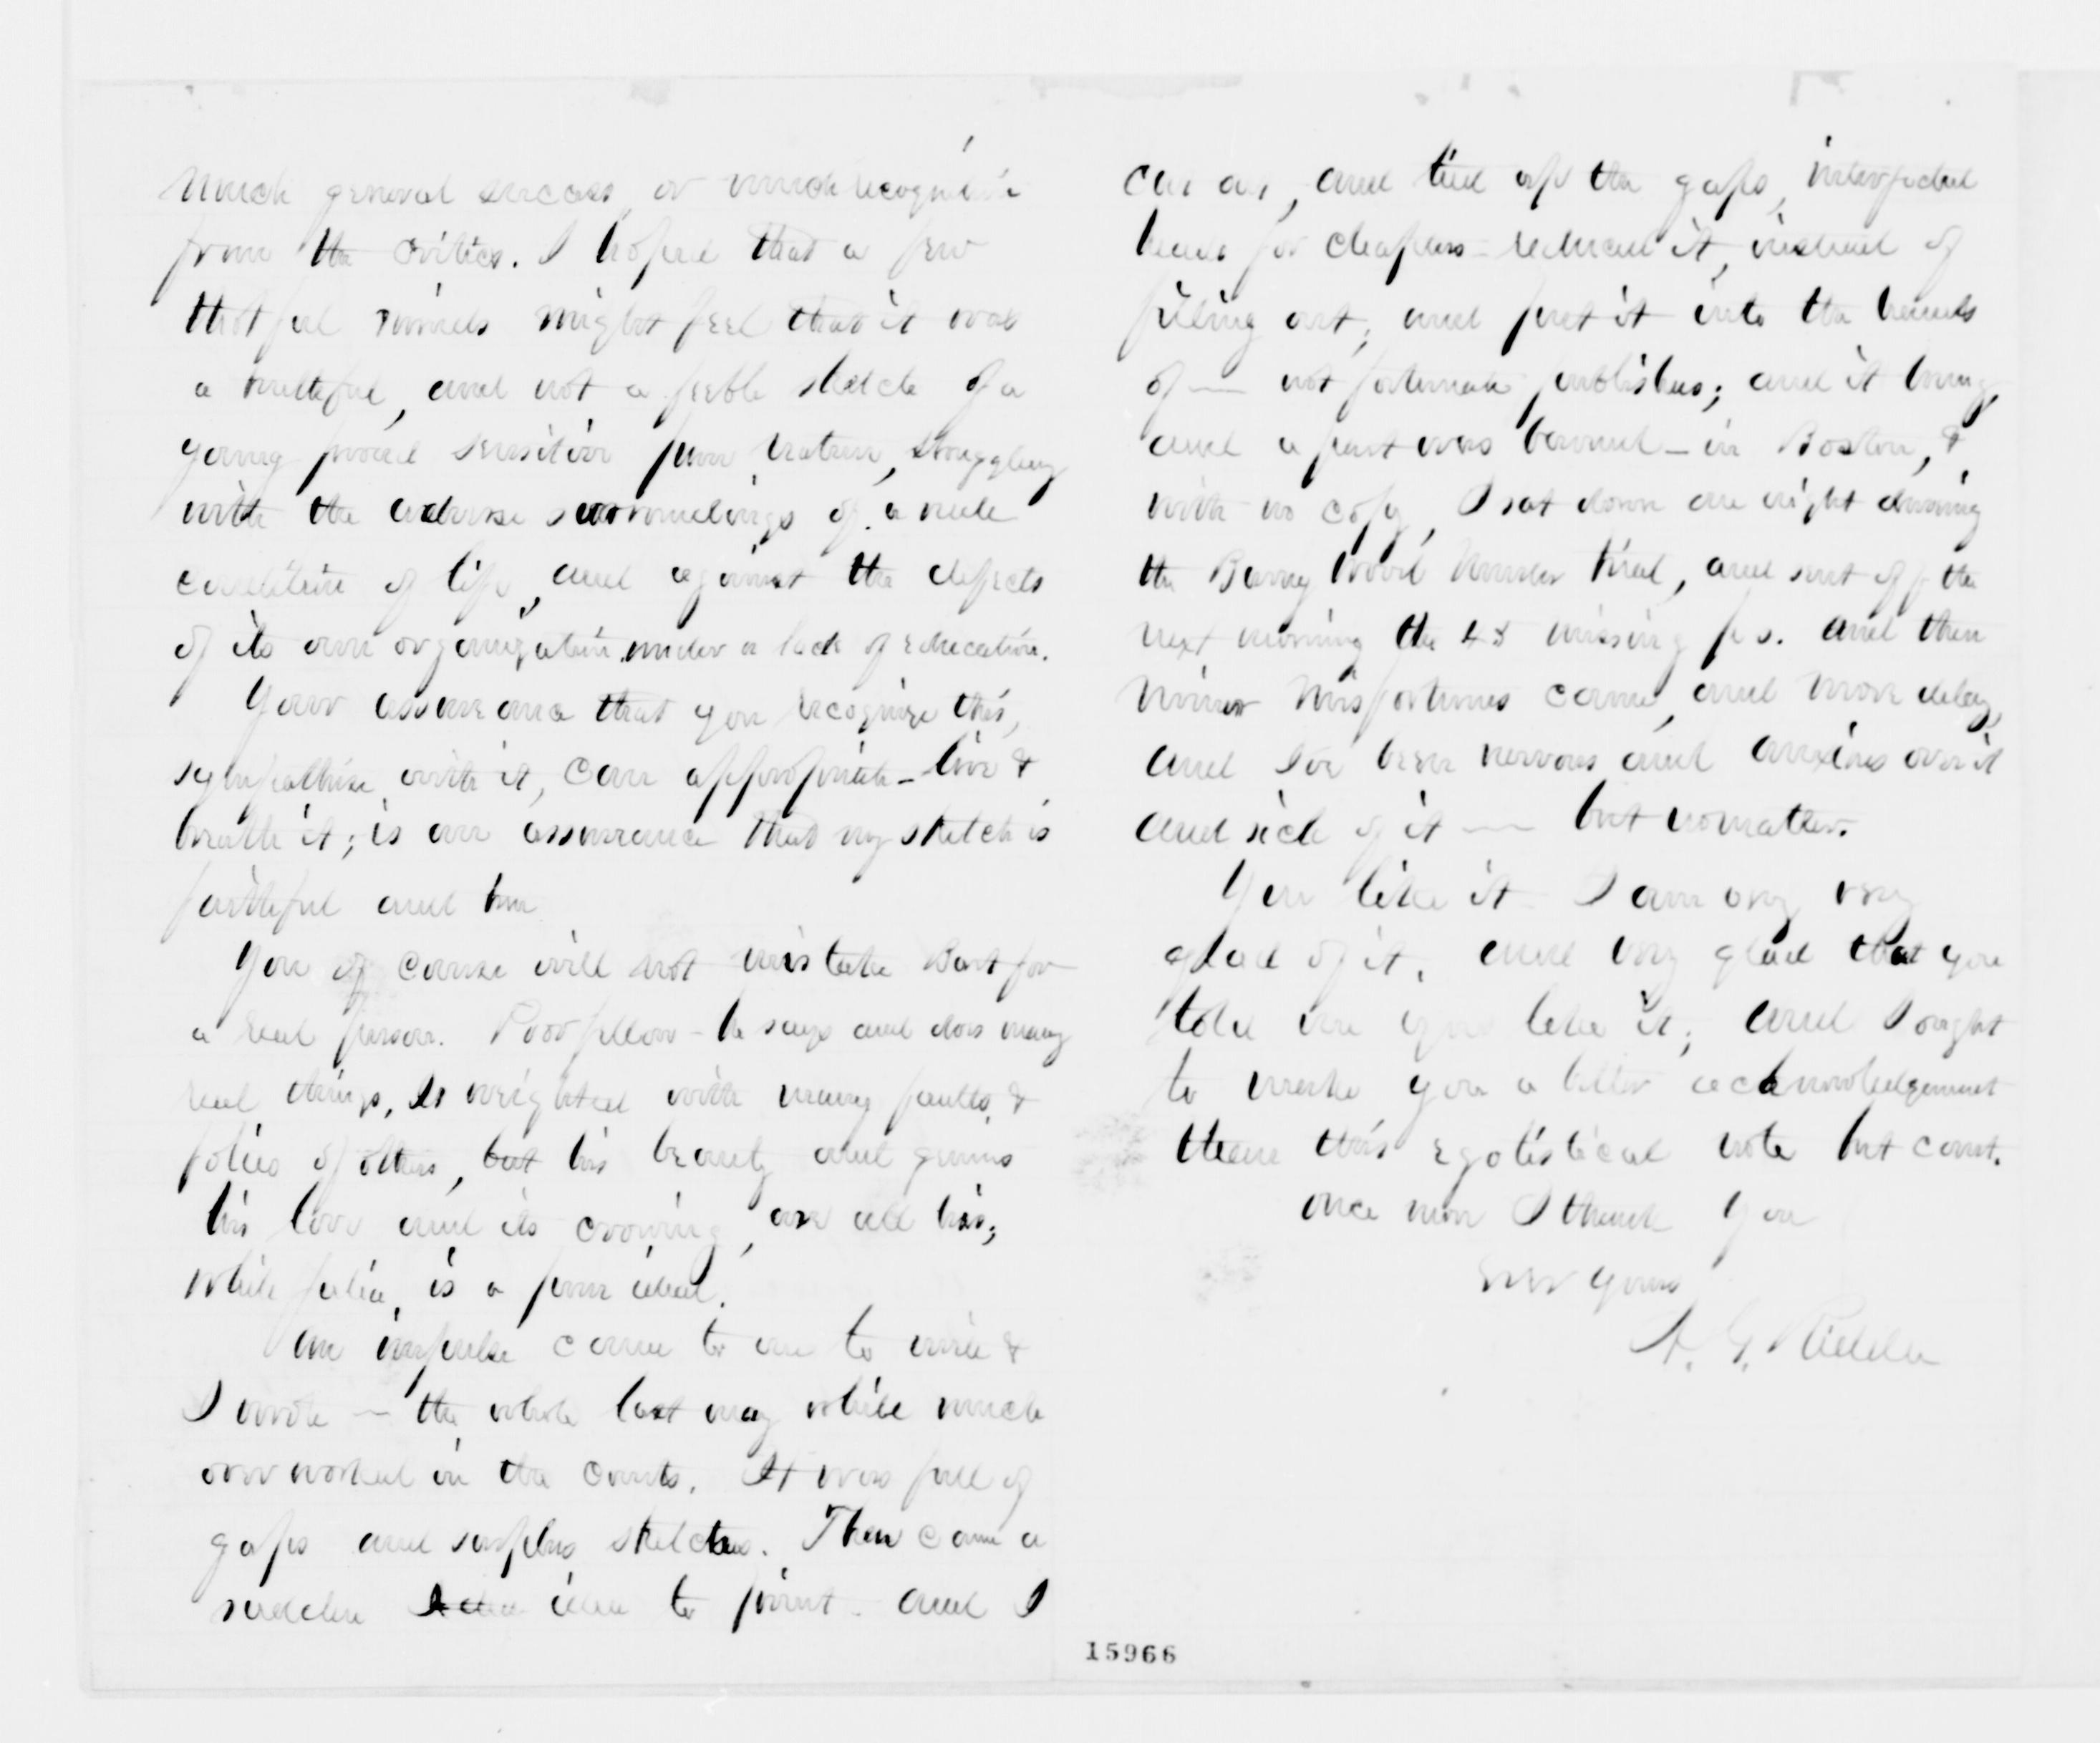 much general success, or much recognition
from the critics. I hoped that a few
thotful minds might feel that it was
a truthful, and not a feeble sketch of a
young proud sensitive pure nature, struggling
with the adverse surroundings of a rude
condition of life, and against the defects
of its own organization, under a lack of education.
Your assurance that you recognize this,
sympathise with it, can appropriate – live &
breathe it; is an assurance that my sketch is
faithful and true
You of course will not mistake Bart for
a real person. Poor fellow – he says and does many
real things, is weighted with many faults, &
folies of others, but his beauty and genius
his love and its crowning, are all his;
while Julia, is a pure ideal.
An impulse came to me to write &
I wrote — the whole last may while much
over worked in the courts. It was full of
gaps and surplus sketches. Then came a
sudden idea to print. and I
cut out, and tied up the gaps, interjected
heads for chapters – reduced it, instead of
filing out; and put it into the hands
of — not fortunate publishers; and it hung,
and a part was burned – in Boston, &
with no copy, I sat down one night during
the Barry murder trial, and sent off the
next morning the 48 missing ps. and then
minor misfortunes came, and more delay,
and I've been nervous and anxious over it
and sick of it — but no matter.
You like it – I am very very
glad of it. and very glad that you
told me you like it; and I ought
to make you a better acknowledgement
than this egotistical note but cant.
once more I thank you
ever yours
A. G. Riddle
15966